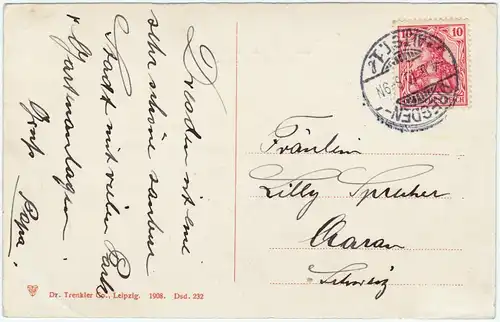 Dresden ist eine
sehr schöne saubere
Stadt mit vielen Park
& Gartenanlagen
Gruss Papa!
10
DRESDEN
Fräulein
Lilly Sprecher
Aarau
Schweiz
Dr. Trenkler Co., Leipzig. 1908. Dsd. 232